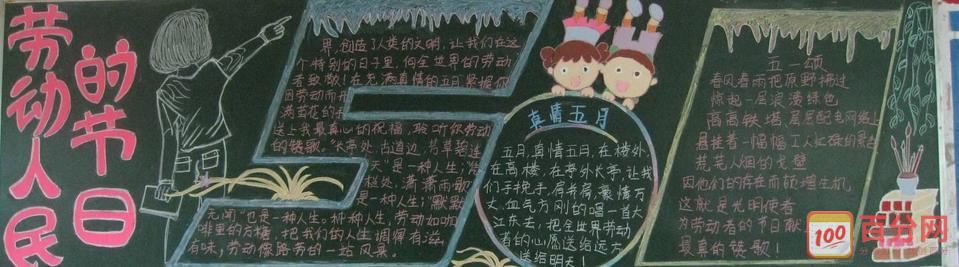 劳动人民
的节日
界,创造了人类的文明,让我们在这
个特别的日子里,向全世界的劳动
者致敬!在充满真情的五月
因劳动而
满苦花的
送上我最真心的祝福,聆听你劳动
的赞歌。"长亭外,古道边,芳草碧连
天"是一种人生;"
处,潇潇雨歇"
是一种人生;"默默
无闻"也是一种人生。种种人生,劳动如咖
啡里的方糖,把我们的人生调得有滋
有味,劳动像路旁的一站风景。
真情五月
五月,真情五月,在楼外,
在高楼,在亭外长亭,让我
们手挽手,肩并肩,豪情万
丈,血气方刚的唱一直大
江东去,把全世界劳动
者的心愿送给远方
送给明天!
五一颂
春风春雨把原野拂过
惊起一层浪漫绿色
高高铁塔层层配电网络上
悬挂着一幅幅工人忙碌的
荒芜人烟的戈壁
因他们的存在而顿增生机
这就是光明使者
为劳动者的节日献
最真的赞歌!
100
百分网